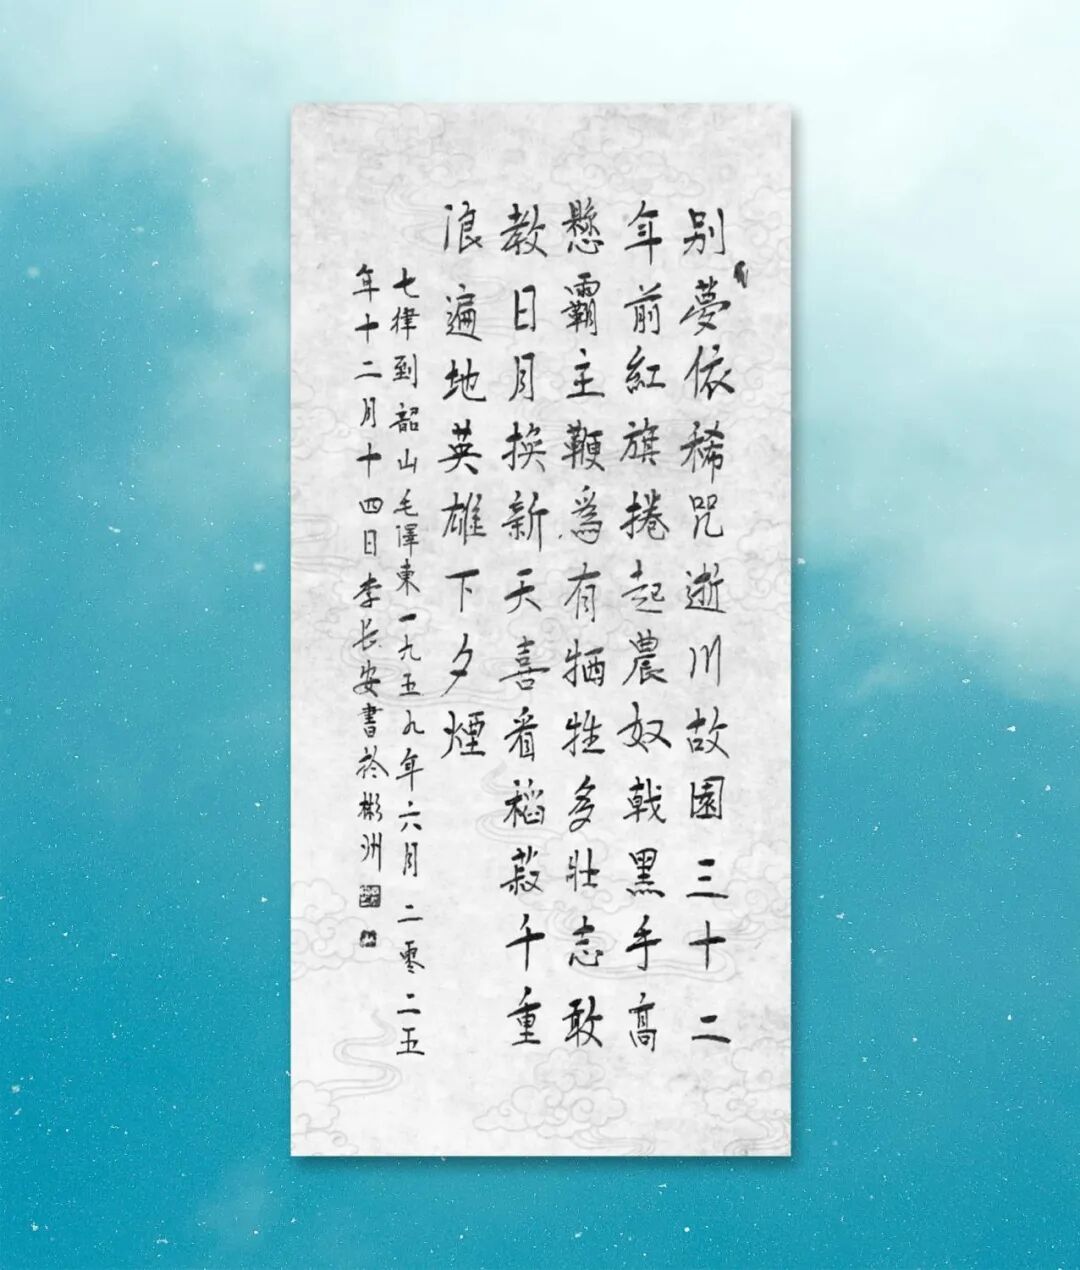 别夢依稀咒逝川故園三十二
年前紅旗捲起農奴戟黑手高
懸霸主鞭為有犧牲多壯志敢
教日月換新天喜看稻菽千重
浪遍地英雄下夕煙
七律到韶山毛澤東一九五九年六月二零二五
年十二月十四日李长安書於彬州